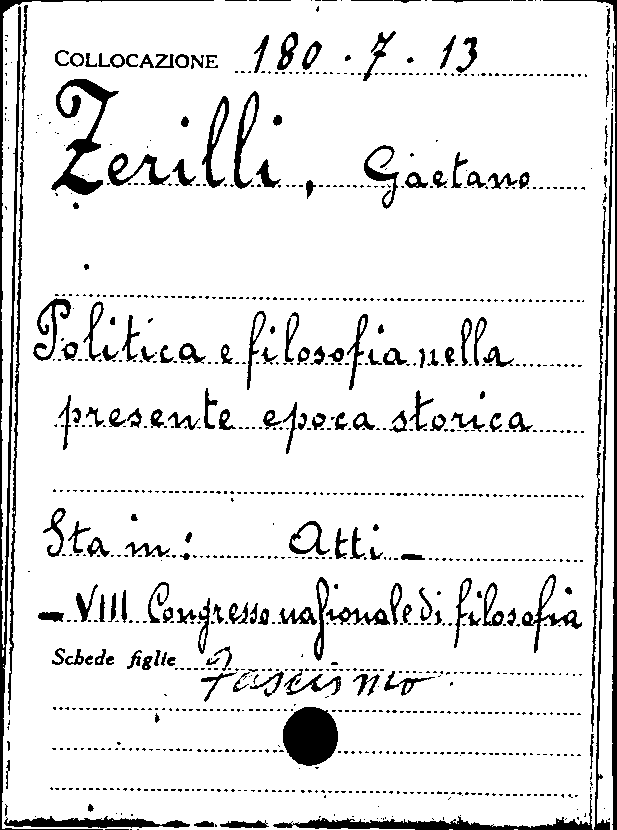 COLLOCAZIONE 180.7.13
Zerilli, Gaetano
Politica e filosofia nella
presente epoca storica
Sta in: Atti -
- VIII Congresso nazionale di filosofia
Schede figlie Fascismo.